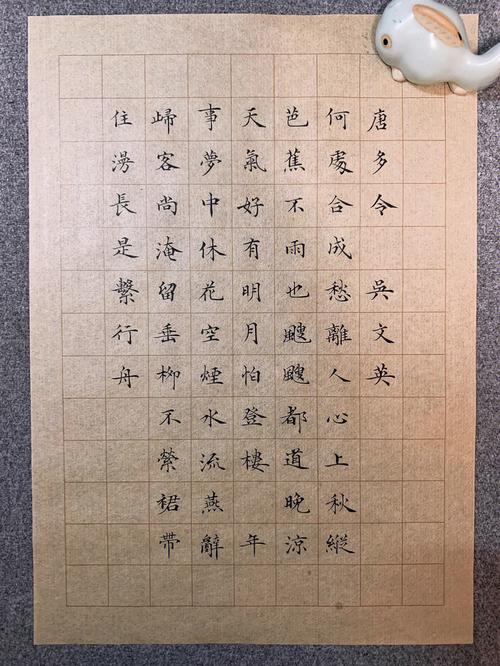 唐多令 吳文英
何處合成愁離人心上秋縱
芭蕉不雨也颼颼都道晚涼
天氣好有明月怕登樓 年
事夢中休花空煙水流燕辭
㱕客尚淹留垂柳不縈裙帶
住漫長是繫行舟